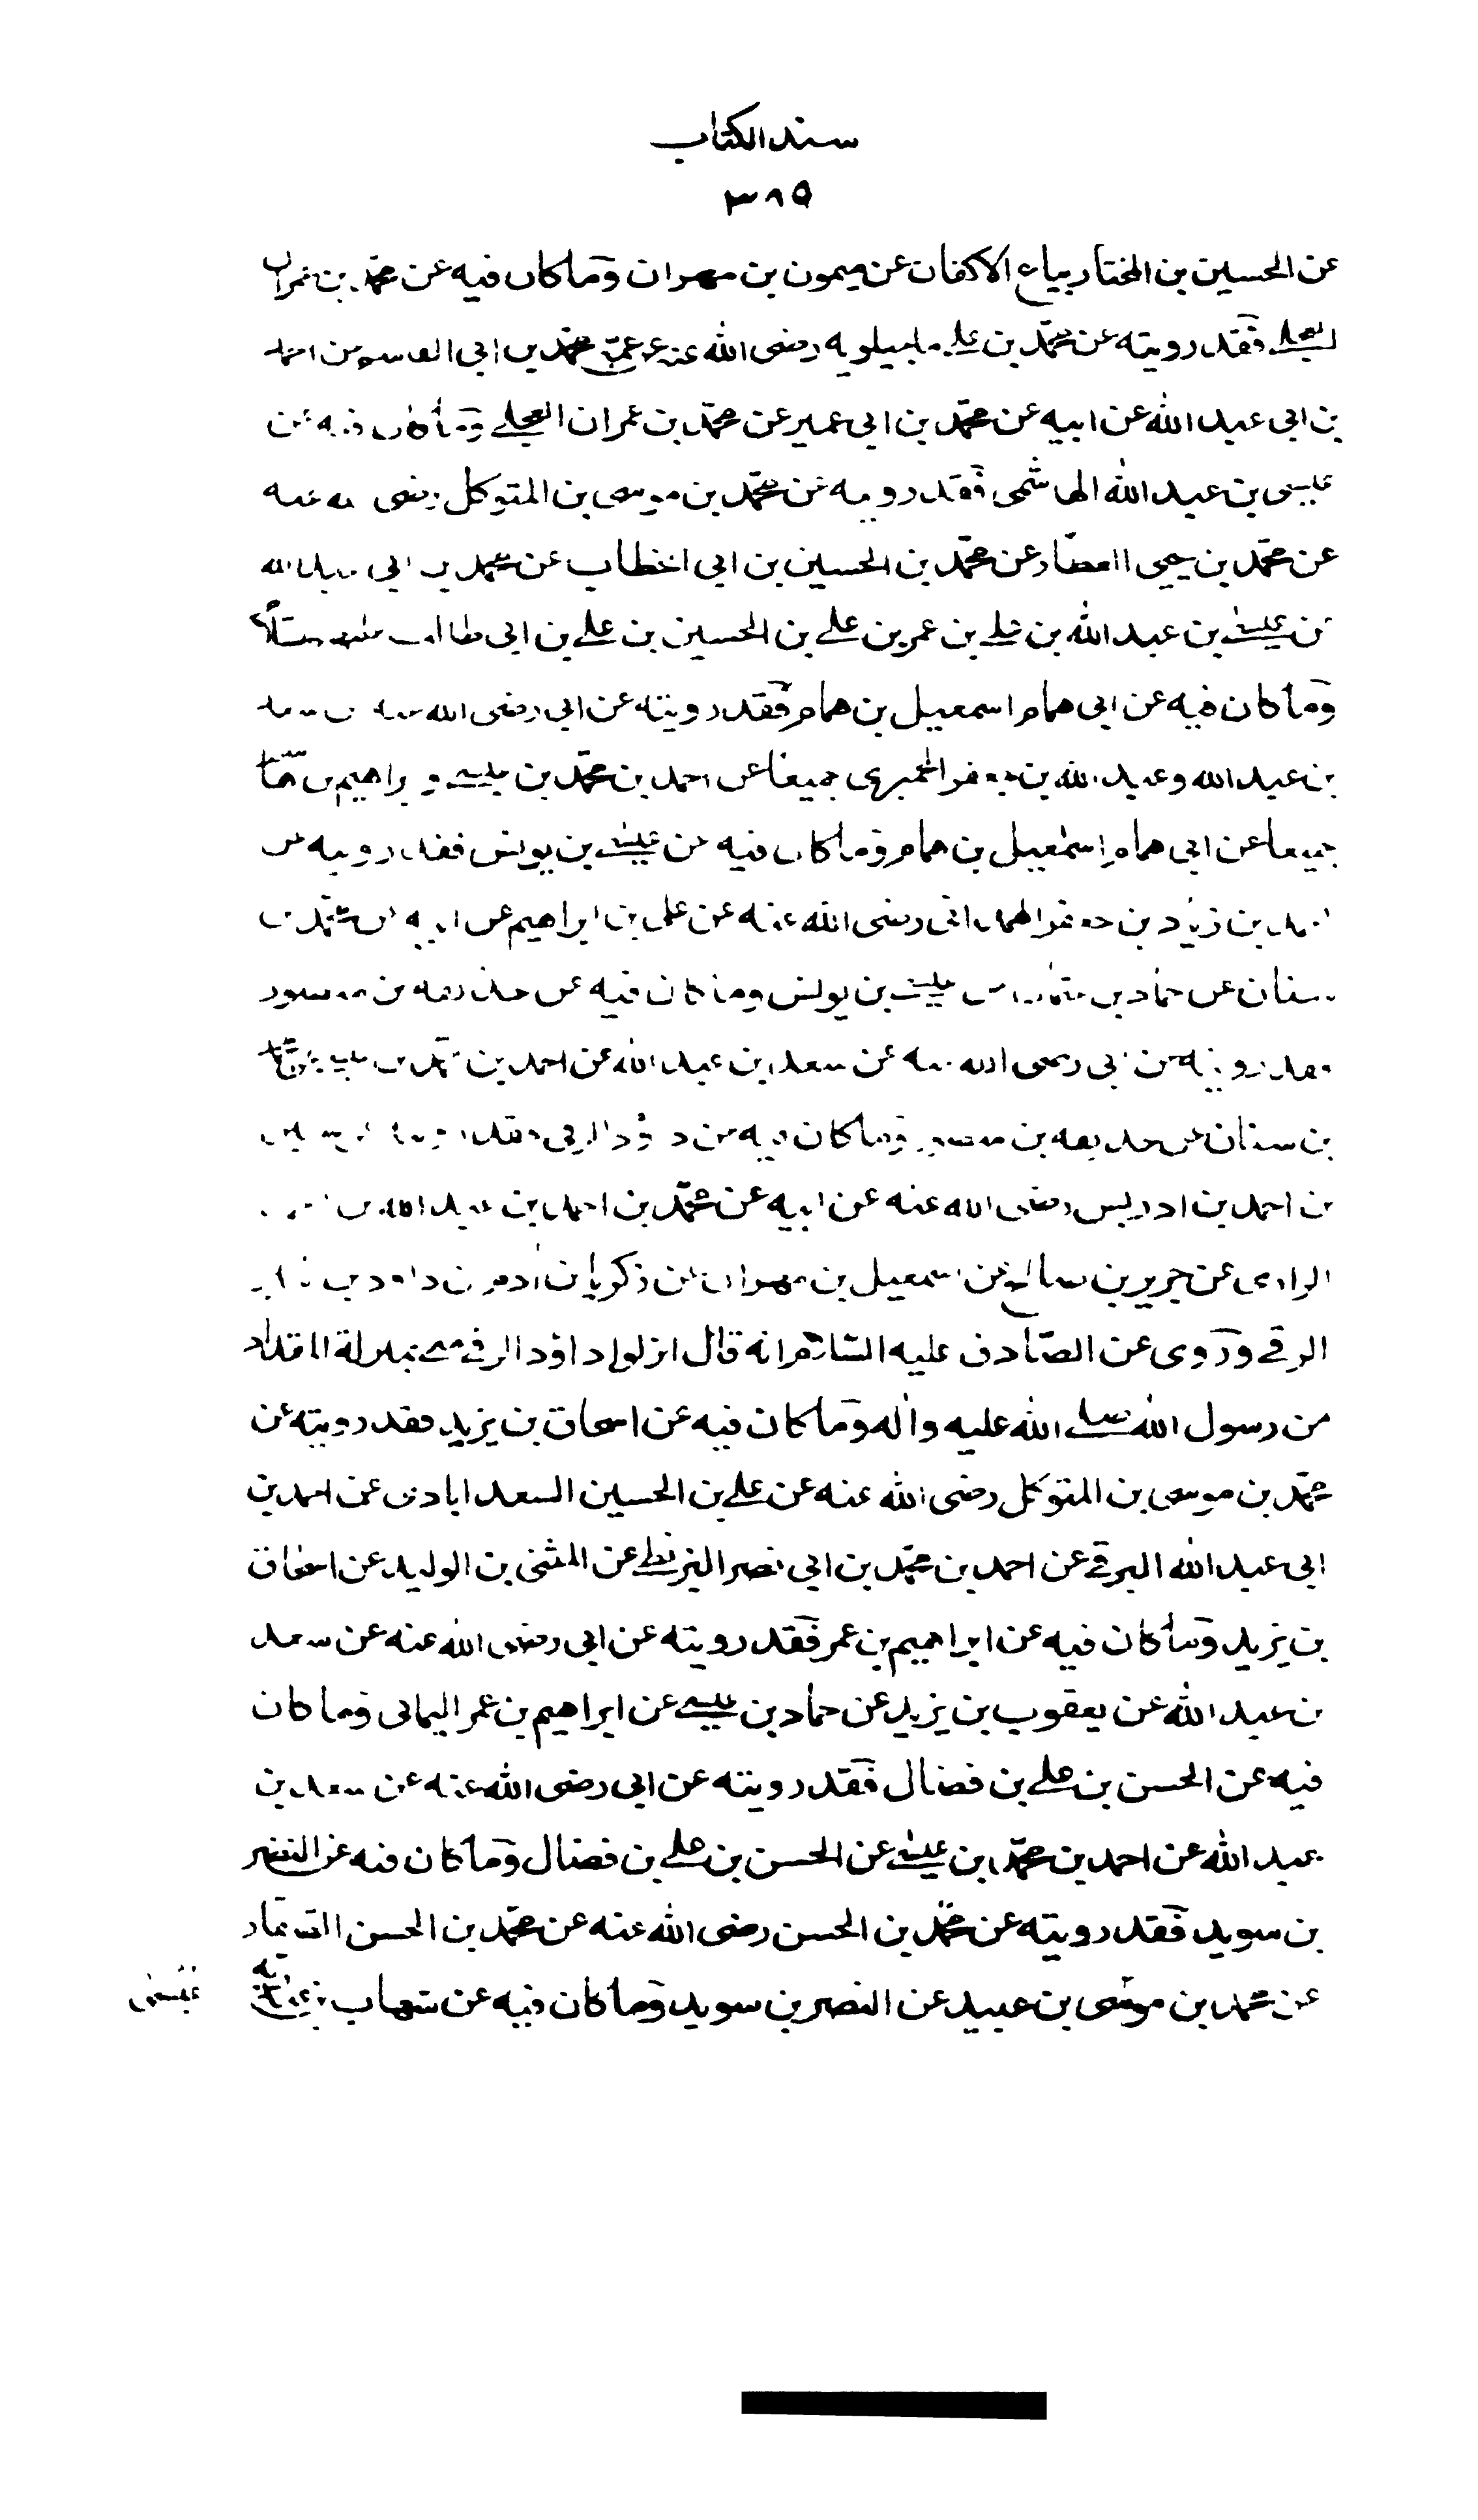 سند الكتاب
٣٨٩
عن الحسين بن المختار بياع الاكفان عن ميمون بن مهران وما كان فيه عن محمد بن عمران
العجلى فقد رويته عن محمد بن على ماجيلويه رضى الله عنه عن عمه محمد بن ابى القاسم عن احمد
بن ابى عبد الله عن ابيه عن محمد بن ابى عمير عن محمد بن عمران العجلى وما كان فيه عن
عيسى بن عبد الله الهاشمى فقد رويته عن محمد بن موسى بن المتوكل رضى الله عنه
عن محمد بن يحيى العطار عن محمد بن الحسين بن ابى الخطاب عن محمد بن ابى عبد الله
عن عيسى بن عبد الله بن على بن عمر بن على بن الحسين بن على بن ابى طالب عليهم السلام
وما كان فيه عن ابى همام اسمعيل بن همام فقد رويته عن ابى رضى الله عنه عن سعد
بن عبد الله وعبد الله بن جعفر الحميرى جميعا عن احمد بن محمد بن عيسى و ابراهيم بن هاشم
جميعا عن ابى همام اسمعيل بن همام وما كان فيه عن عيسى بن يونس فقد رويته عن
احمد بن زياد بن جعفر الهمدانى رضى الله عنه عن على بن ابراهيم عن ابيه عن محمد بن
سنان عن حماد بن عثمان عن عيسى بن يونس وما كان فيه عن حذيفه بن منصور
فقد رويته عن ابى رضى الله عنه عن سعد بن عبد الله عن احمد بن محمد بن عيسى عن محمد
بن سنان عن حذيفه بن منصور وما كان فيه عن داود الرقى فقد رويته عن الحسين
بن احمد بن ادريس رضى الله عنه عن ابيه عن محمد بن احمد بن عبد الله بن احمد
الرازى عن حرير بن صالح عن اسمعيل بن مهران عن زكريا بن ادم عن داود بن كثير
الرقى وروى عن الصادق عليه السلام انه قال انزلوا داود الرقى منى بمنزلة المقداد
من رسول الله صلى الله عليه واله وما كان فيه عن اسحاق بن يزيد فقد رويته عن
محمد بن موسى بن المتوكل رضى الله عنه عن على بن الحسين السعد ابادى عن احمد بن
ابى عبد الله البرقى عن احمد بن محمد بن ابى نصر البزنطى عن المثنى بن الوليد عن اسحاق
بن يزيد وما كان فيه عن ابراهيم بن عمر فقد رويته عن ابى رضى الله عنه عن سعد
بن عبد الله عن يعقوب بن يزيد عن حماد بن عيسى عن ابراهيم بن عمر اليمانى وما كان
فيه عن الحسن بن على بن فضال فقد رويته عن ابى رضى الله عنه عن سعد بن
عبد الله عن احمد بن محمد بن عيسى عن الحسن بن على بن فضال وما كان فيه عن النضر
بن سويد فقد رويته عن محمد بن الحسن رضى الله عنه عن محمد بن الحسن الصفار
عن محمد بن موسى بن عبيد عن النضر بن سويد وما كان فيه عن شهاب بن عبد ربه
عيسى